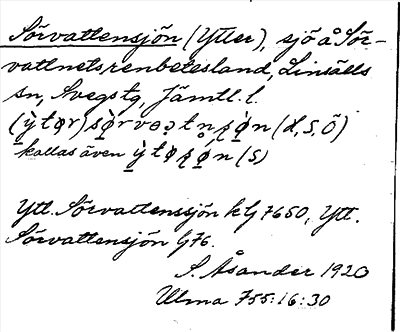 Sörvattensjön (Ytter), sjö å Sör-
vattnets renbetesland, Linsälls
sn, Svegs tg, Jämtl. l.
kallas även
Ytt. Sörvattensjön kG 7650, Ytt.
Sörvattensjön G76.
S. Åsander 1920
Ulma 755:16:30